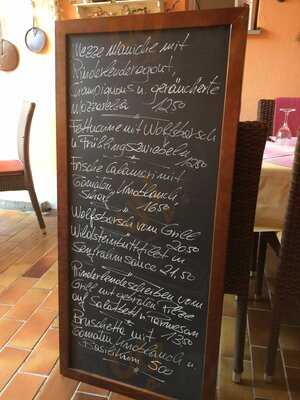 Mezze Maniche mit
Rinderlenderagout,
Champignons u. geräucherte
Mozzarella 12,50
Fettuccine mit Wolfsbarsch
u Frühlingszwiebeln
13,50
Frische Calamari mit
Tomaten, Knoblauch,
scharf 16,50
Wolfsbarsch vom Grill
20,50
Waldsteinbuttfilet in
Senfrahmsauce 21,50
Rinderlendescheiben vom
Grill mit gebraten Pilze
auf Salatbett u Parmesan
13,50
Bruschetta mit
Tomaten, Knoblauch u
Basilikum 5,00